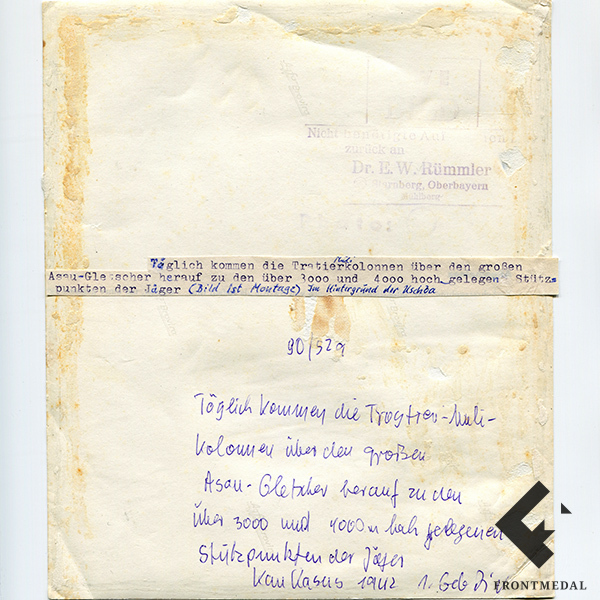 Nicht benötigte
zurück an
Dr. E. W. Rümmler
Starnberg, Oberbayern
Täglich kommen die Tratierkolonnen über den großen
Asau-Gletscher herauf zu den über 3000 und 4000 hoch gelegen Stütz=
punkten der Jäger (Bild ist Montage) Im Hintergrund der Uschba
90/32a
Täglich kommen die Tragtier-Muli-
Kolonnen über den großen
Asau-Gletscher herauf zu den
über 3000 und 4000 m hoch gelegenen
Stützpunkten der Jäger
Kaukasus 1942 1. Geb Di
FRONTMEDAL